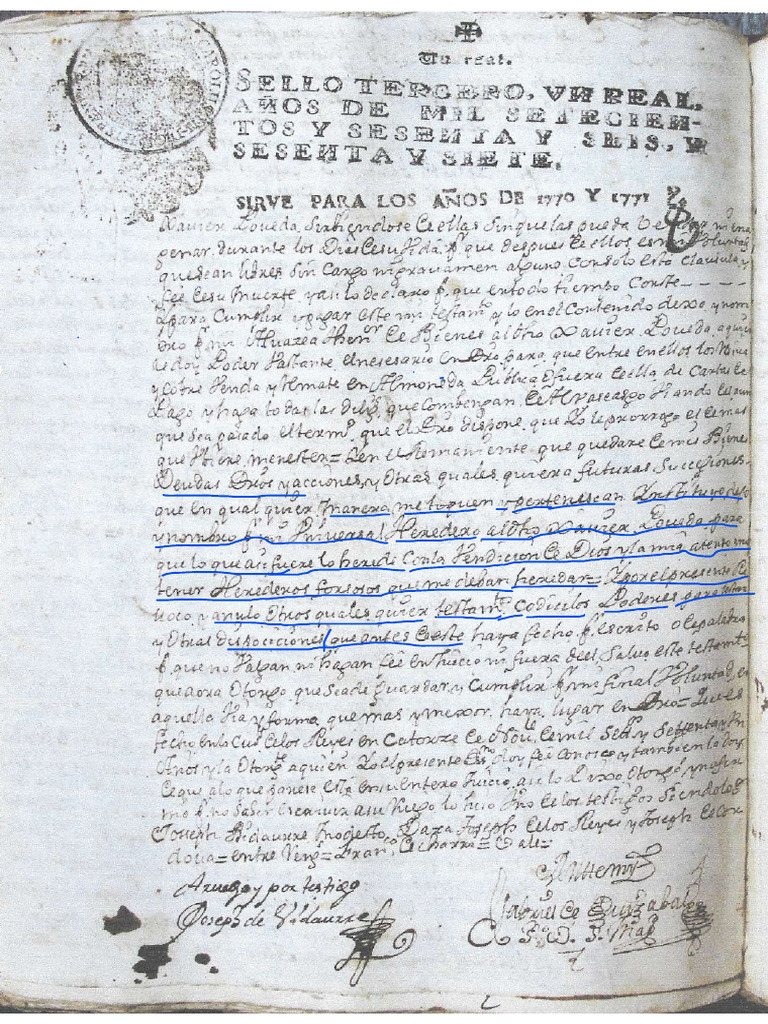 Un real.
SELLO TERCERO, VN REAL,
AÑOS DE MIL SETECIEN-
TOS Y SESENTA Y SEIS, Y
SESENTA Y SIETE.
SIRVE PARA LOS AÑOS DE 1770 Y 1771
Xavier Loveda, sirbiendose de ellas sin que las pueda
genar, durante los Dias de su Vida, pª que despues de ellos, es mi Voluntad
que sean libres sin Cargo ni gravamen alguno, con solo esta clausula, y
fee de su muerte, y asi lo declaro pª que en todo tiempo Conste
Y para Cumplir y pagar este mi testamtº y lo en el Contenido dexo y nom
bro pr mi Alvazea thenr de Bienes al dho Xavier Loveda aquien
le doy Poder Bastante, el nesesario en Dro para, que entre en ellos los
y cobre Venda y Remate en Almoneda Publica o fuera de ella de Cartas de
Pago y haga todas las que Combengan
que sea pasado el termº que el Dro dispone, que Yo le prorrogo el demas
que Hubiere menester = Y en el Remaniente que quedare de mis Bienes
Deudas Dros y acciones, y Otras quales quiera futuras Sucçiones
que en qual quier manera me toquen y pertenescan Instituyo dejo
y nombro pr mi Universal Heredero al dho Xavier Loveda para
que lo que asi fuere lo herede Con la Vendicion de Dios y la mia atento a no
tener Herederos forsosos que me deban heredar = Y por el presente Re
voco, y anulo Otros quales quier testamtos Codicilos Poderes para testar
y Otras dispociciones que antes de este haya fecho pr Escrito o de palabra
pª que no Valgan ni hagan fee en Juicio ni fuera de el Salvo este testamtº
que aora Otorgo que se a de Guardar y Cumplir pr mi final Voluntad, en
aquella Via y forma, que mas y mexor, haya lugar en Dro = Que es
fecho en la Ciud de los Reyes en Catorze de de mil Setzs y Septenta y Un
Años y la Otorgte aquien Yo el presente Essno doy fee Conosco y tambien la doy
de que alo que parese Esta en su entero Juicio, asi lo Dixo Otorgó, y no fir
mo pr no Saber Escrivir a su Ruego lo hizo Uno de los testigos Siendolo Dn
Joseph Vidaurre Modesto Daza Joseph de los Reyes y Joseph de Cor
dova = entre Rengs = Vale =
A ruego y por testigo
Joseph de Vidaurre
Ante mi
Gabriel de